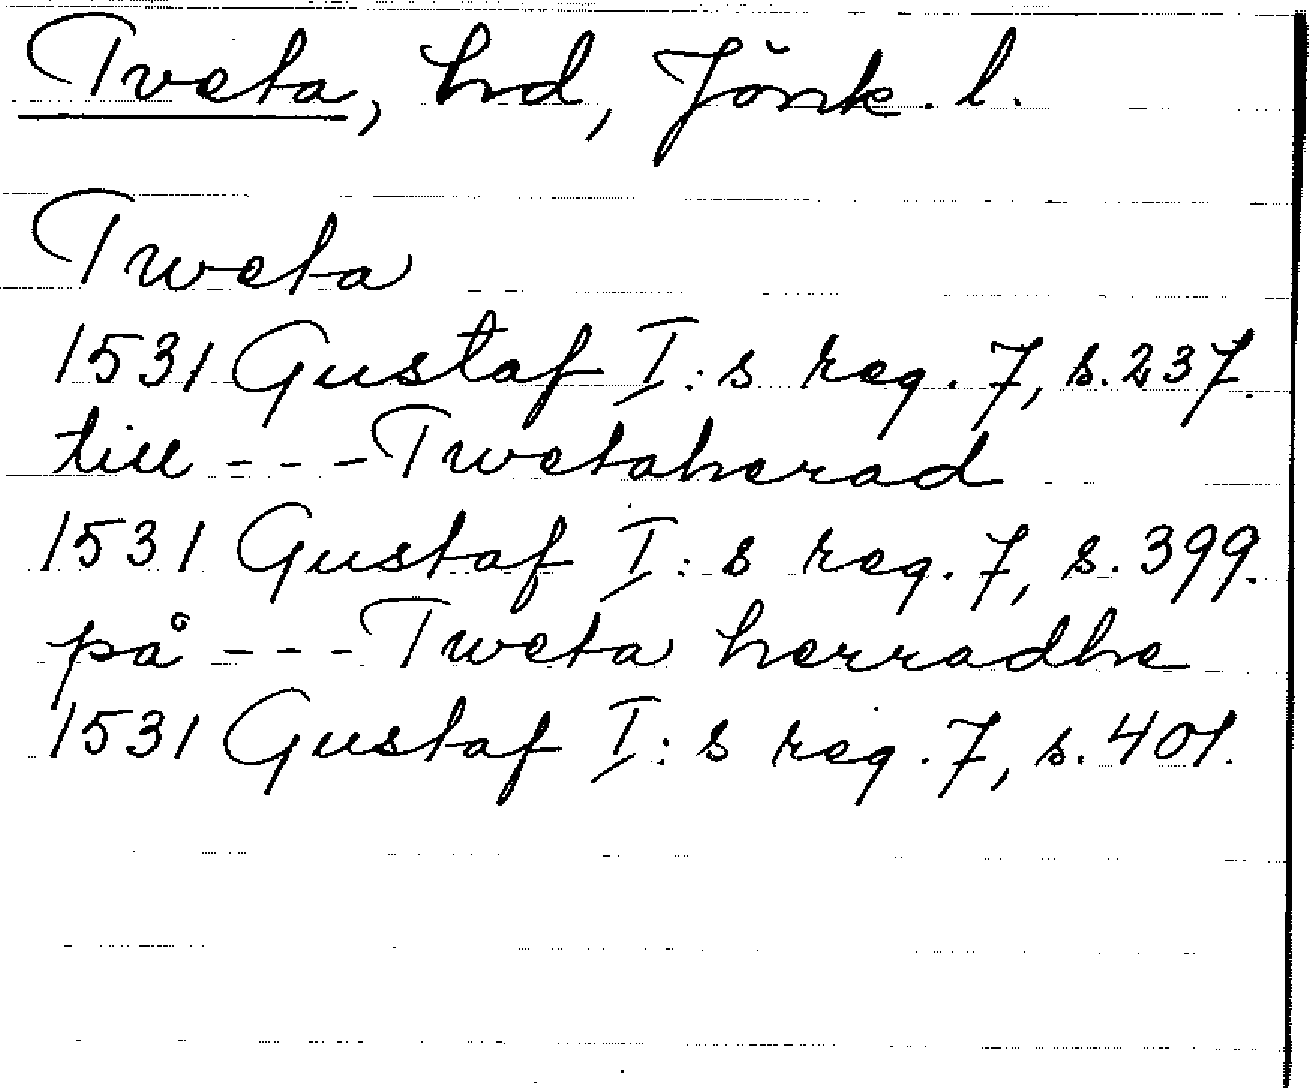 Tveta, hd, Jönk. l.
Tweta
1531 Gustaf I:s reg. 7, s. 237.
till - - - Twetaherad
1531 Gustaf I:s reg. 7, s. 399.
på - - - Tweta herradhe
1531 Gustaf I:s reg. 7, s. 401.